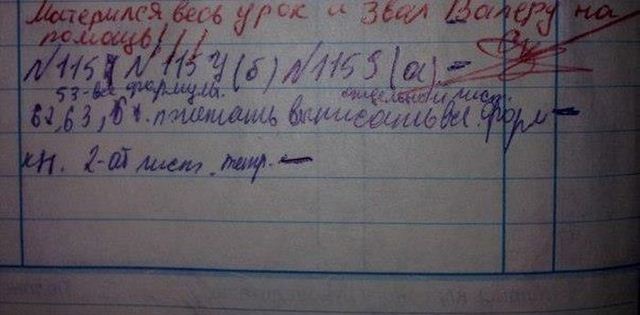 Матерился весь урок и звал Валеру на
помощь!!!
№1157 №1157 (б) №1159 (а) –
53-все формулы. отдельный лист.
62,63, читать выписать все форм –
кн. 2-ой лист. тетр. –